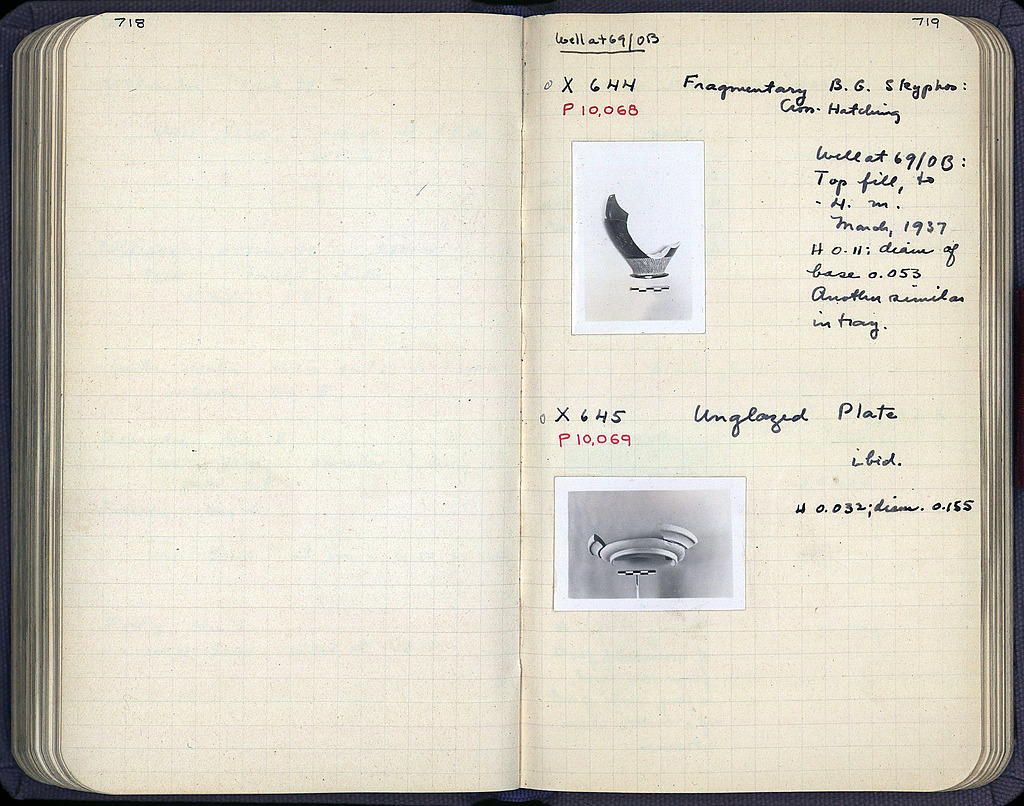 718
719
Well at 69/OB
X 644 Fragmentary B.G. Skyphos:
Cross-Hatching
P 10,068
Well at 69/OB:
Top fill, to
- 4. m.
March, 1937
H 0.11; diam of
base 0.053
Another similar
in tray.
X 645 Unglazed Plate
P 10,069
ibid.
H 0.032; diam. 0.155